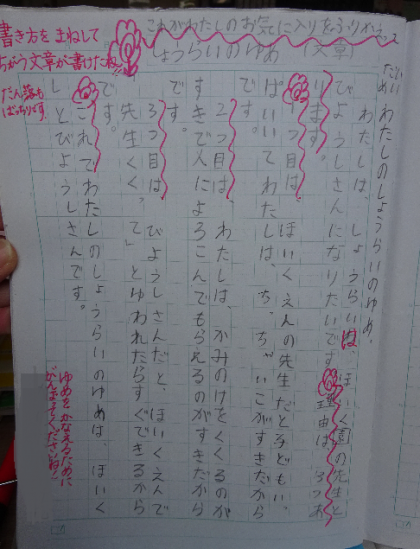 これがわたしのお気に入りをふりかえって
しょうらいのゆめ (文章)
書き方をまねして
ちがう文章が書けたね
だん落も
ばっちりです。
わたしのしょうらいのゆめ。
わたしは、しょうらいはほいく園の先生と
びようしさんになりたいです。理由は、3つあ
ります。
1つ目は、ほいくえんの先生だと子どもい、
ぱいいてわたしは、ち、ちゃいこがすきだから
です。
2つ目は、わたしは、かみのけをくくるのが
すきで人によろこんでもらえるのがすくだから
です。
3つ目は、びようしさんだと、ほいくえんで
先生くくって、とゆわれたらすぐできるから
です。
これでわたしのしょうらいのゆめは、ほいく
しとびようしさんです。
ゆめをかなえるために
がんばってくださいね!